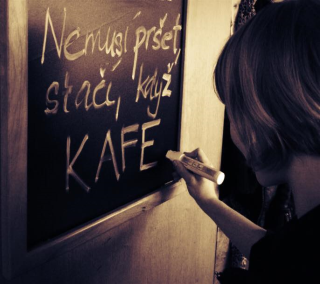 Nemusí pršet,
stačí, když
KAFE